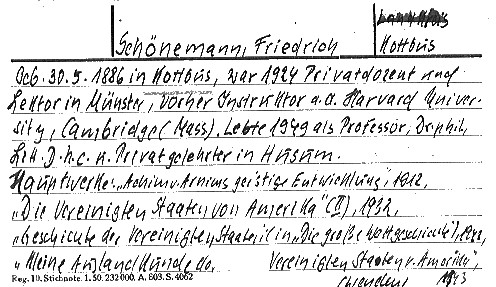 Schönemann, Friedrich
Kottbus
Geb. 30.5.1886 in Kottbus, war 1924 Privatdozent und
Lektor in Münster, vorher Instruktor a.d. Harvard Univer-
sity, Cambridge (Mass). Lebte 1949 als Professor, Dr. phil.
Litt. D. h.c. u. Privatgelehrter in Husum.
Hauptwerke: „Achim v. Arnims geistige Entwicklung", 1912,
„Die Vereinigten Staaten von Amerika" (II), 1932,
„Geschichte der Vereinigten Staaten" in „Die große Weltgeschichte",
„Kleine Auslandskunde der Vereinigten Staaten v. Amerika",
Reg. 10. Stichnote. 1. 50. 232000. A. 603. S. 4062
1943